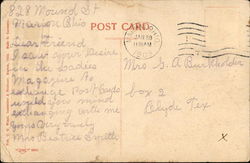 828 Mound St
Marion Ohio
POST CARD
Dear Friend
I saw your Desire
in the Ladies
Magazine to
exchange Post Cards
would you mind
exchanging with me
yours Very truly
Mrs Beatrice
MARION OHIO
JAN 30
11 30 AM
Mrs G A Burkholder
box 2
Clyde Tex
X